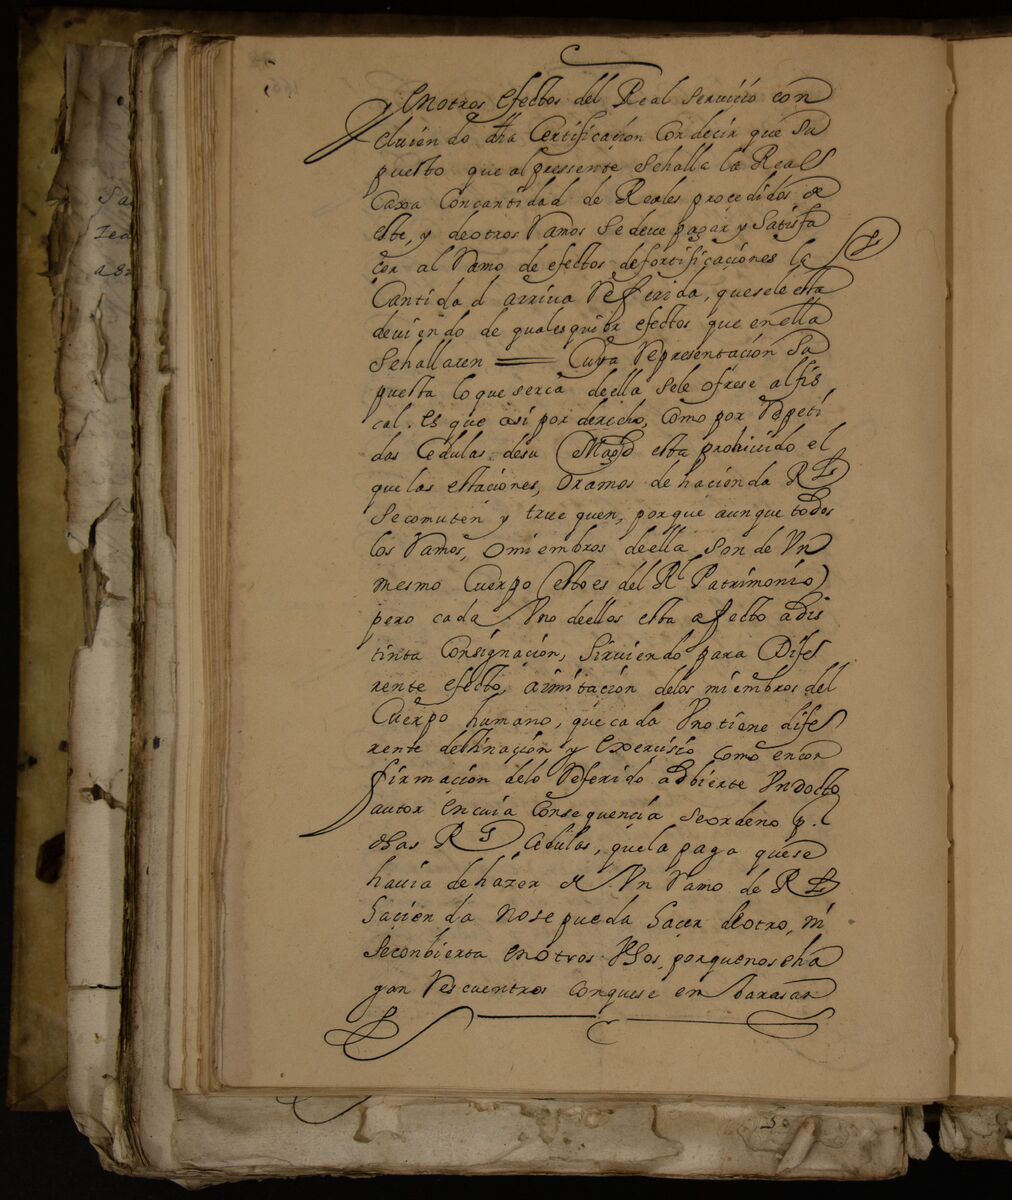 en otros efectos del Real servicio con
cluiendo dha Certificazion Con decir que Su
puesto que al pressente sehalla la Real
Caxa Con cantidad de Reales procedidos de
este, y de otros Ramos se deve pagar y Satisfa
cer al Ramo de efectos de fortificaçiones la
Cantidad arriva Referida, que sele esta
deviendo de qualesquier efectos que en ella
Sehallaren = Cuya Representación Su
puesta lo que serca de ella sele ofrese al fis
cal. Es que asi por derecho, Como por Repeti
das Cedulas de su Magd esta prohivido el
que las estaciones, o ramos de hacienda Rl
Se comuten y truequen, porque aunque todos
los Ramos, o miembros de ella son de Un
mesmo Cuerpo (esto es del Rl Patrimonio)
pero cada Uno de ellos esta afecto a dis
tinta Consignación, Sirviendo para Dife
rente efecto, a imitación delos miembros del
Cuerpo humano, que cada Uno tiene dife
rente destinación y Exercisio como en con
firmación delo Referido adbierte Un docto
autor en cuia Consequencia se ordeno p.
dhas Rs Cedulas, que la paga que se
havia de hazer de Un Ramo de Rl
haçienda no se pueda haçer de otro, ni
se conbierta en otros Usos, porque no se ha
gan Rescuentros con que se embarasan